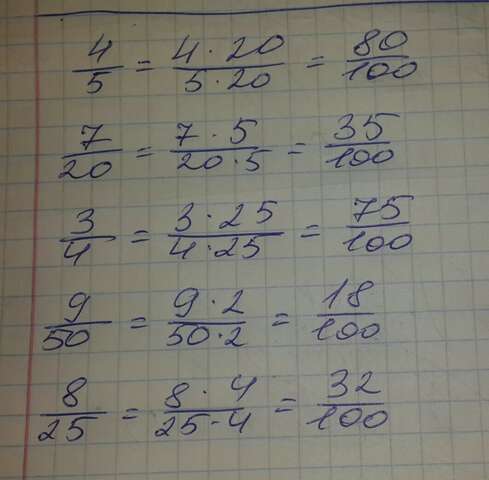 4/5 = 4·20/5·20 = 80/100
7/20 = 7·5/20·5 = 35/100
3/4 = 3·25/4·25 = 75/100
9/50 = 9·2/50·2 = 18/100
8/25 = 8·4/25·4 = 32/100